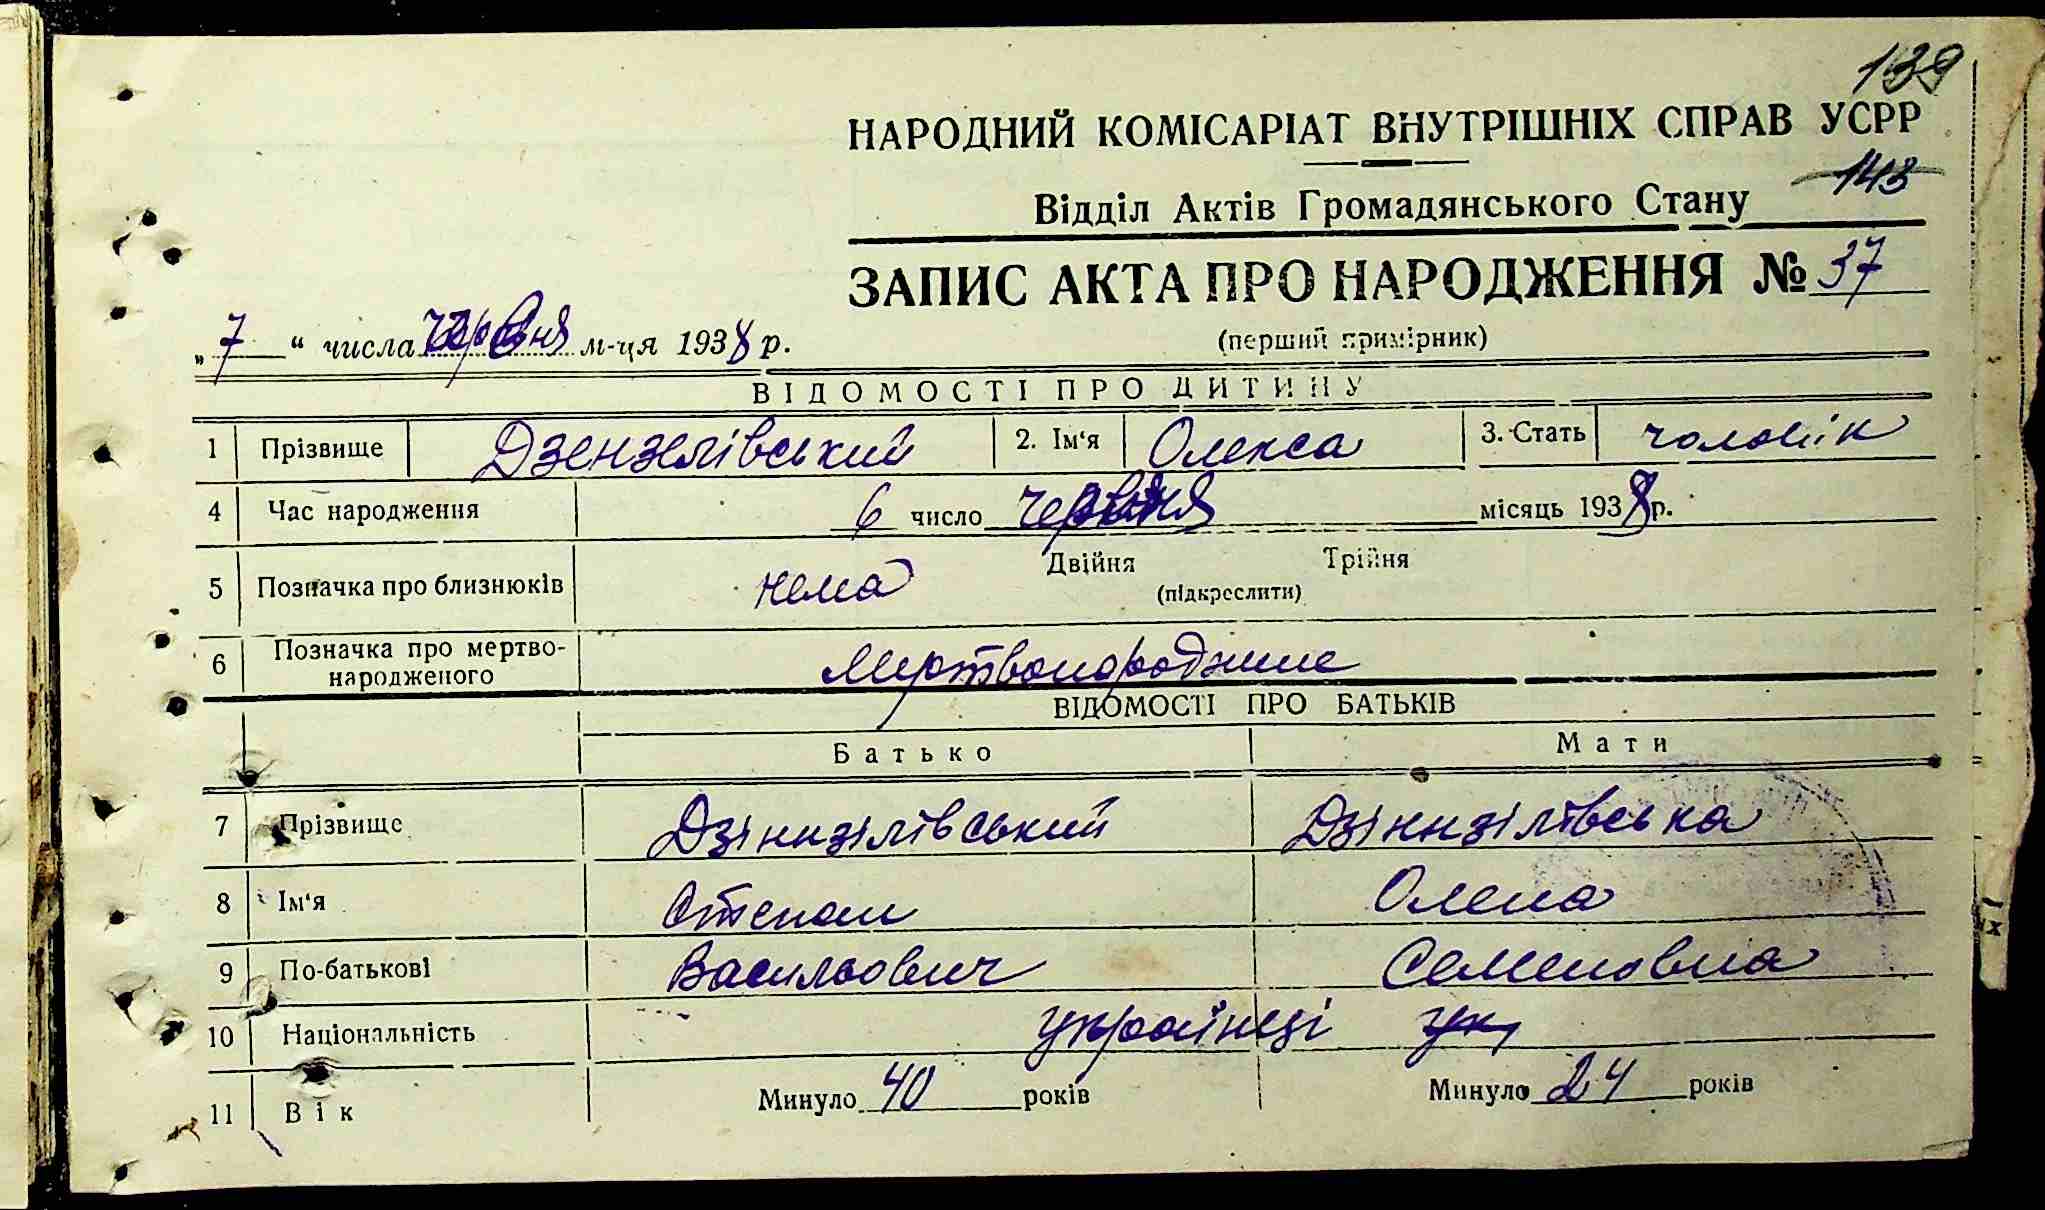 139
НАРОДНИЙ КОМІСАРІАТ ВНУТРІШНІХ СПРАВ УСРР
143
Відділ Актів Громадянського Стану
ЗАПИС АКТА ПРО НАРОДЖЕННЯ № 37
(перший примірник)
„7“ числа червня м-ця 1938 р.
ВІДОМОСТІ ПРО ДИТИНУ
1 Прізвище Дзензелівський 2. Ім'я Олекса 3. Стать чоловік
4 Час народження 6 число червня місяць 1938 р.
5 Позначка про близнюків нема Двійня Трійня
(підкреслити)
6 Позначка про мертво-
народженого Мертвонароджине
ВІДОМОСТІ ПРО БАТЬКІВ
Батько Мати
7 Прізвище Дзінзілівський Дзінзілівська
8 Ім'я Степан Олена
9 По-батькові Васильович Семеновна
10 Національність українці ук
11 Вік Минуло 40 років Минуло 24 років